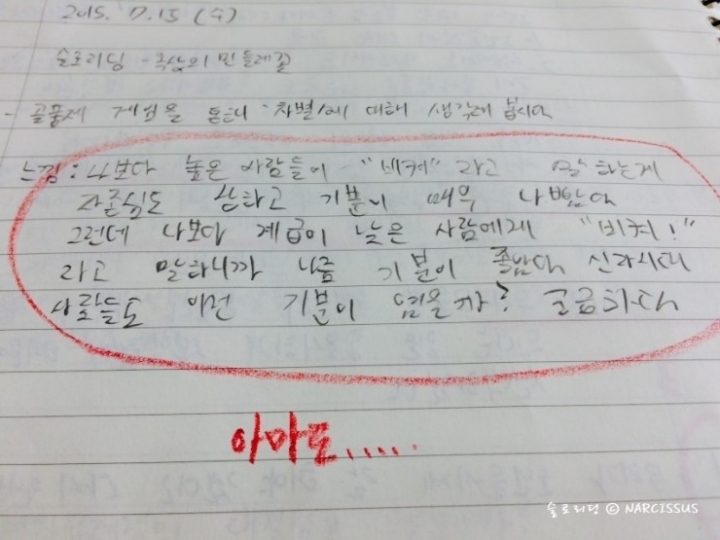 2015. 7.15 (수)
슬로리딩 - 국상의 민들레꽃
- 골품제 게임을 통해 '차별'에 대해 생각해 봅시다
느낌 : 나보다 높은 사람들이 "비켜" 라고 말하는게
자존심도 상하고 기분이 매우 나빴다
그런데 나보다 계급이 낮은 사람에게 "비켜!"
라고 말하니까 나름 기분이 좋았다 신라시대
사람들도 이런 기분이 였을까? 궁금하다
아마도.....
슬로리딩 © NARCISSUS